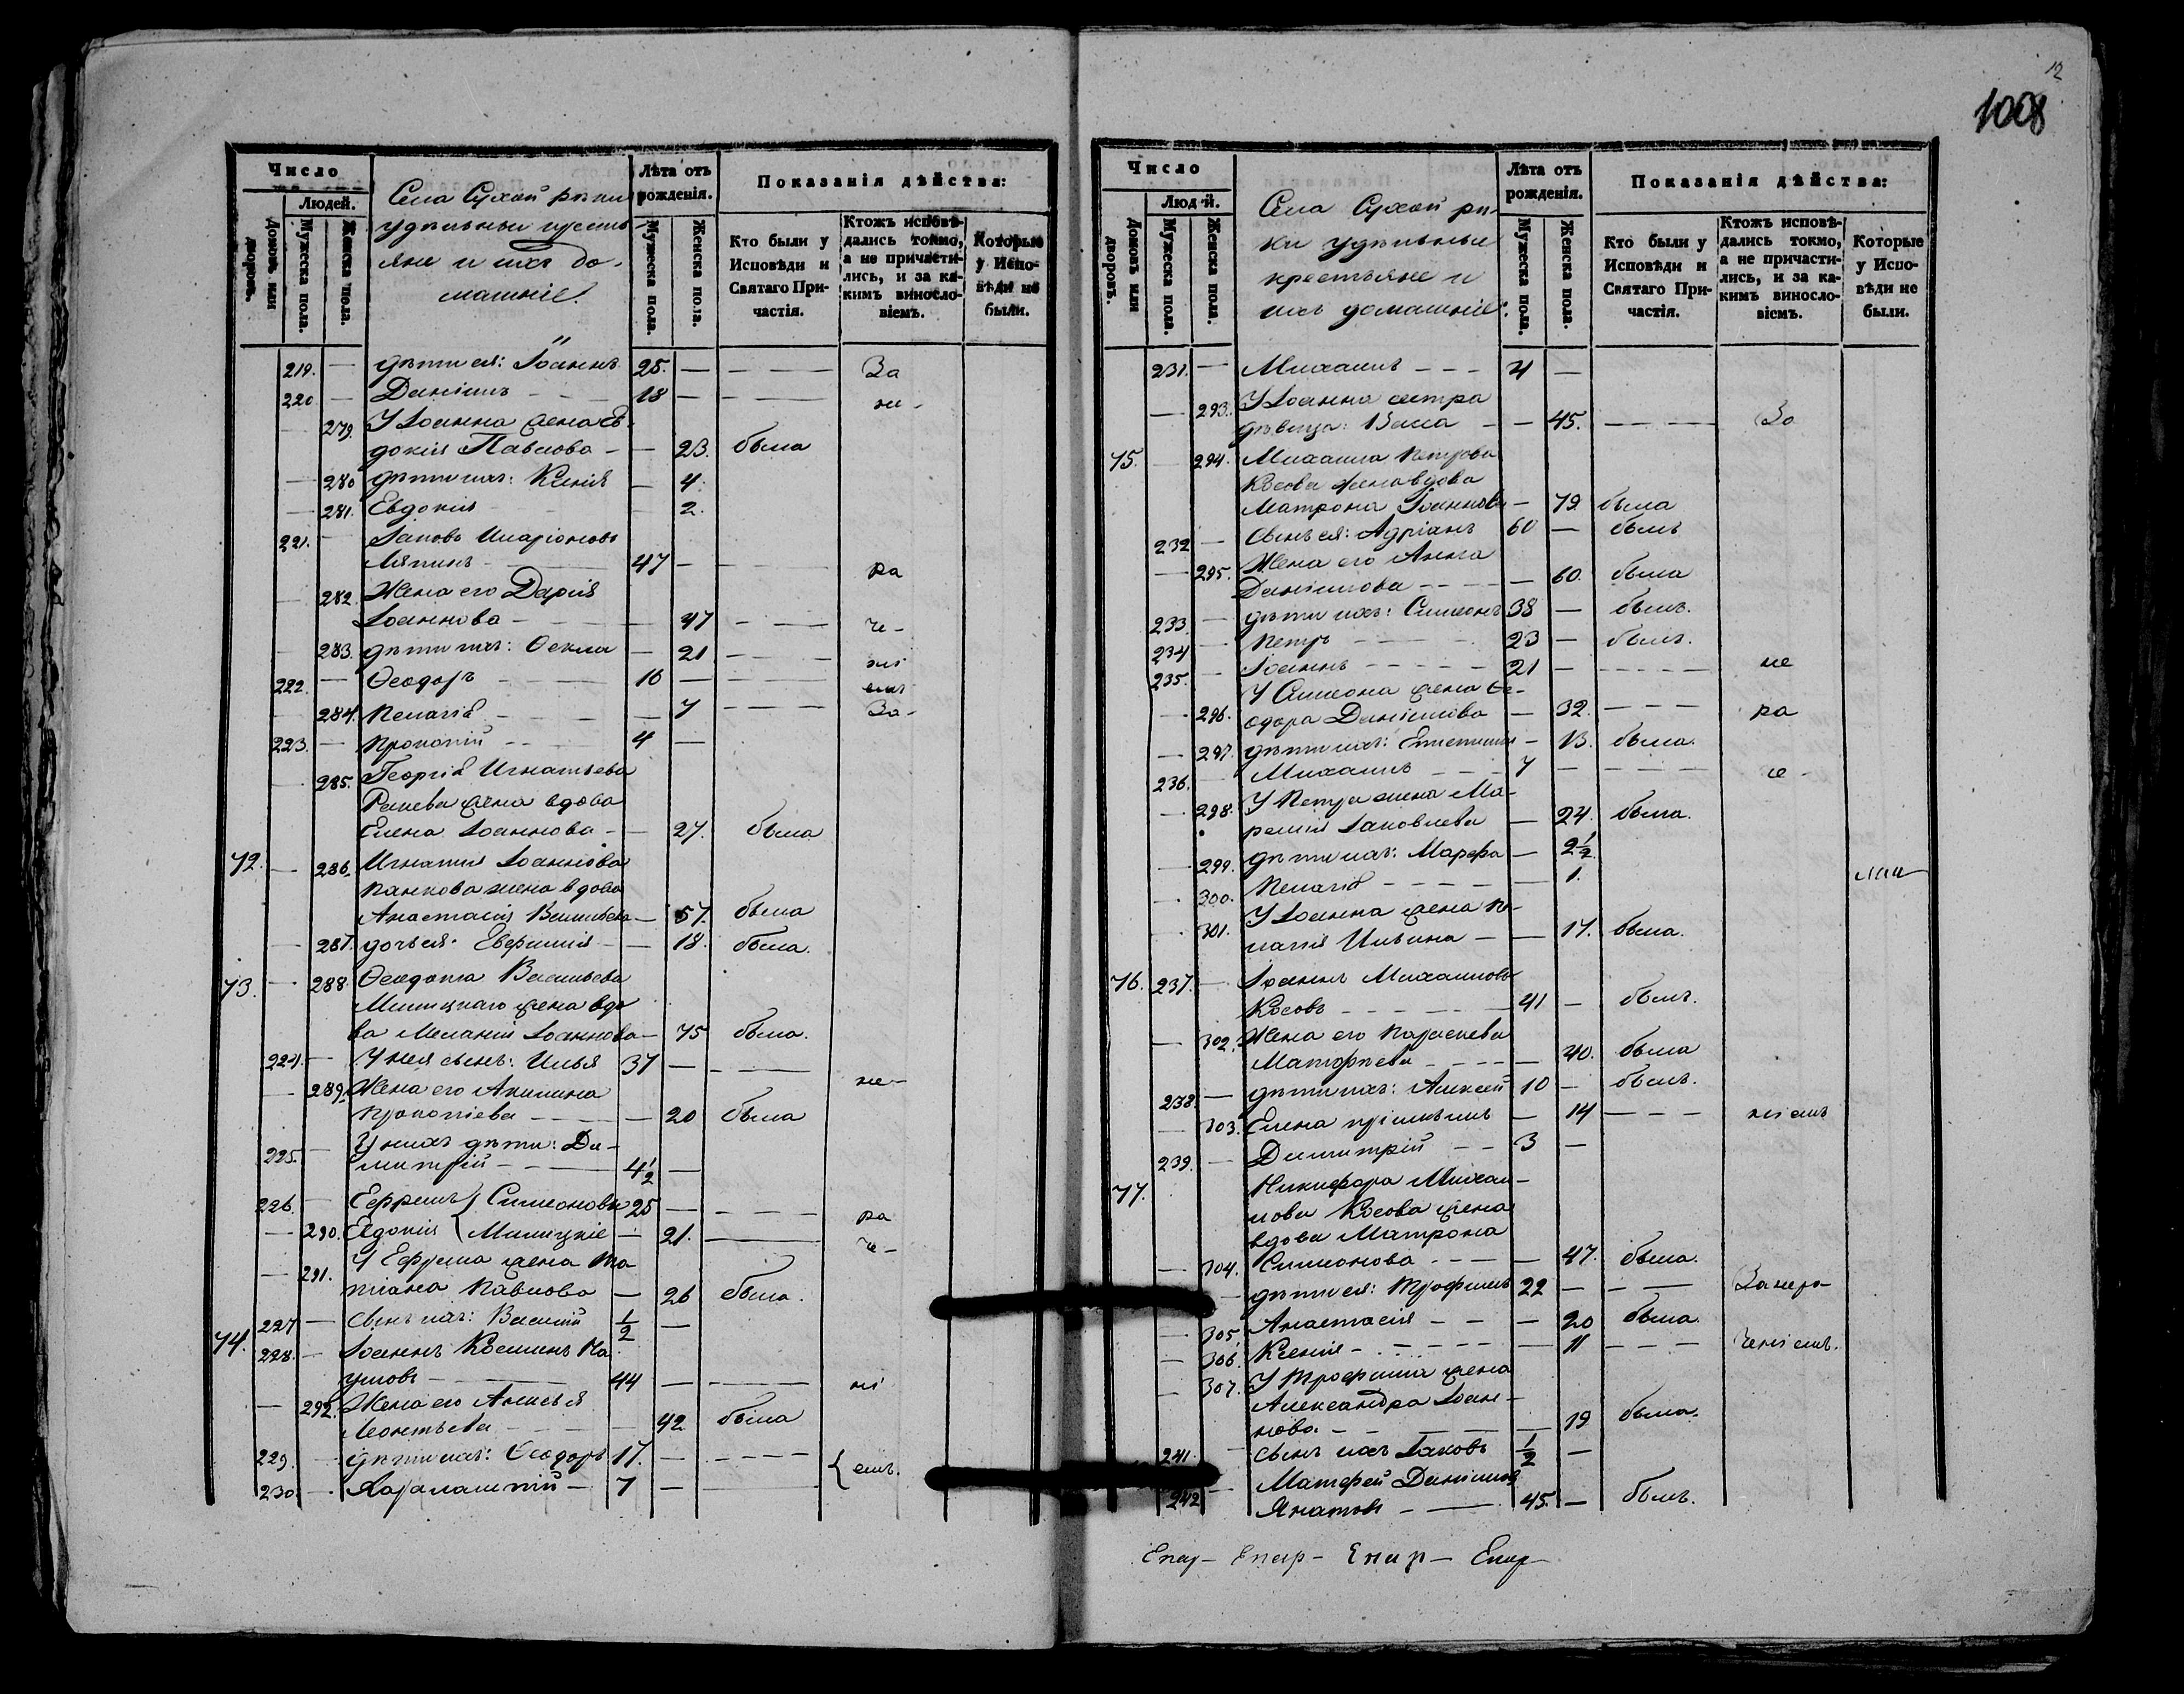 12
1008
Число
Людей.
Домовъ или дворовъ.
Мужеска пола.
Женска пола.
Села Сухой рѣки
удѣльныи крестья
яне и ихъ до-
машніе.
Лѣта отъ рожденія.
Мужеска пола.
Женска пола.
Показанія дѣйства:
Кто были у Исповѣди и Святаго Причастія.
Ктожъ исповѣдались токмо, а не причастились, и за какимъ винословіемъ.
Которые у Исповѣди не были.
219. — дѣти ея: Іоаннъ 25. — — — За
220 — Даніилъ 18 — — не-
— 279. У Іоанна жена Ев-
докія Павлова — — 23. была
— 280 дѣти ихъ: Ксенія — 4.
— 281. Евдокія 2.
221. — Іаковъ Иларіоновъ
Ляпинъ 47 — — — ра
— 282. Жена его Дарія
Іоаннова — — 47 — — че-
283. дѣти ихъ: Ѳекла — 21 — — ні
222. — Ѳеодоръ — 16 — — емъ
— 284. Пелагія — 7 — — За-
223. — Прокопій — 4 —
— 285. Георгія Игнатьева
жена вдова
Елена Іоаннова — — 27. была
72. — 286. Игнатія Іоаннова
Панкова жена вдова
Анастасія Васильева — 57. была
— 287. дочь ея: Евфимія — — 18. была.
73. — 288. Ѳеодота Васильева
Милицкаго жена вдо
ва Меланія Іоаннова — 75 была.
224. — У нея сынъ: Илья 37 — — — не-
— 289. Жена его Акилина
Прокопіева — — 20 была
225. — У нихъ дѣти: Ди-
митрій — 4 1/2 —
226. — Ефремъ } Симеоновы 25 — — ра
— 290. Евдокія { Милицкіе — 21. — че-
— 291. У Ефрема жена Та
тіана Павлова — 26 была.
227 — сынъ ихъ: Василій 1/2 —
74. 228. — Іоаннъ Косминъ На
умовъ — 44 — — ні
— 292. Жена его Анисья
Леонтьева — 42 была
229. — дѣти ихъ: Ѳеодоръ 17. — — { емъ.
230. — Харалампій — 7 — —
Число
Людей.
Домовъ или дворовъ.
Мужеска пола.
Женска пола.
Села Сухой рѣ-
ки удѣльные
крестьяне и
ихъ домашніе:
Лѣта отъ рожденія.
Мужеска пола.
Женска пола.
Показанія дѣйства:
Кто были у Исповѣди и Святаго Причастія.
Ктожъ исповѣдались токмо, а не причастились, и за какимъ винословіемъ.
Которые у Исповѣди не были.
231. — Михаилъ — — 4 —
— 293. У Іоанна сестра
дѣвица: Васса — — 45. — — За
75. — 294. Михаила Петрова
Косова жена вдова
Матрона Іоаннова — 79 была
232 — Сынъ ея: Адріанъ 60 — былъ
— 295. Жена его Анна
Даніилова — — 60. была
233. — дѣти ихъ: Симеонъ 38 — былъ.
234 — Петръ — 23 — былъ.
235. — Іоаннъ — 21 — — не
— 296. У Симеона жена Ѳе-
одора Даніилова — 32. — — ра
— 297. дѣти ихъ: — 13. была.
236. — Михаилъ — 7 — — че-
— 298. У Петра жена Ма-
ремія Іаковлева — 24. была.
— 299. дѣти ихъ: Марфа — 2 1/2.
— 300. Пелагія — — 1.
— 301. У Іоанна жена Пе-
лагія Ильина — — 17. была.
76. 237. — Іоаннъ Михаиловъ
Косовъ — 41 — былъ.
— 302. Жена его Параскева
Матѳѣева — — 40. была
238. — дѣти ихъ: Алексей 10 — былъ.
— 303. Елена — 14 — — ніемъ
239. — Димитрій — 3 —
77. Никифора Михаи-
лова Косова жена
вдова Матрона
— 304. Симеонова — — 47. была.
— дѣти ея: Трофимъ 22 — — Занера-
— 305. Анастасія — — 20 была.
— 306. Ксенія — — 11 — — ченіемъ.
— 307. У Трофима жена
Александра Іоан-
нова — — 19 была.
241. — сынъ ихъ Іаковъ 1/2 —
242 — Матфей Даніиловъ
Янатовъ — 45. — былъ.